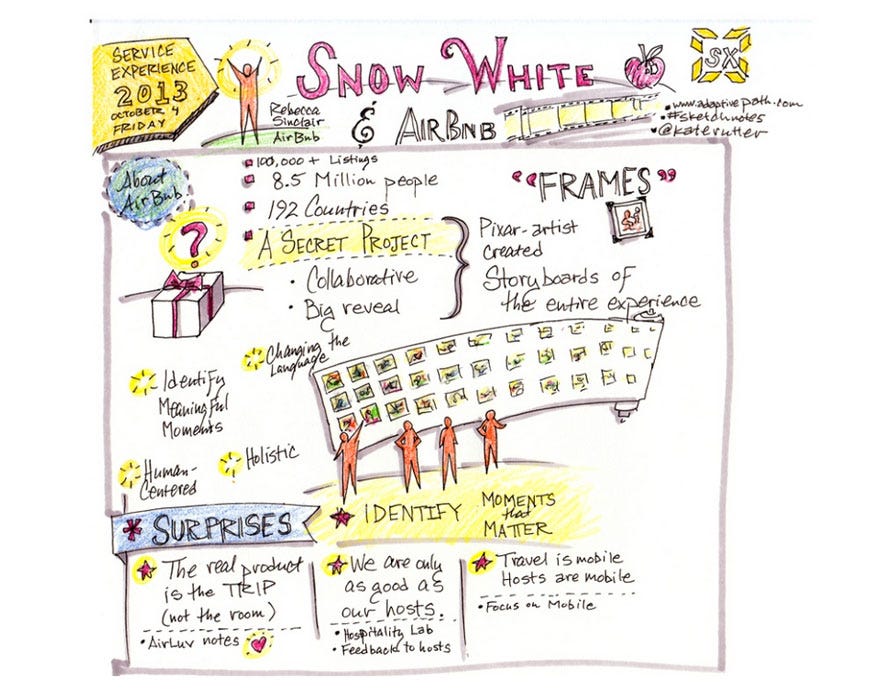 SERVICE
EXPERIENCE
2013
OCTOBER 4
FRIDAY
Rebecca
Sinclair
AirBnb
SNOW WHITE
& AIRBNB
SX
www.adaptivepath.com
#sketchnotes
@katerutter
About
AirBnb
100,000 + Listings
8.5 Million people
192 Countries
A SECRET PROJECT
• Collaborative
• Big reveal
?
"FRAMES"
Pixar-artist
created
Storyboards of
the entire experience
Changing the
Language
Identify
Meaningful
Moments
Human-
Centered
Holistic
* SURPRISES
IDENTIFY MOMENTS
that
MATTER
The real product
is the TRIP
(not the room)
• AirLuv notes
We are only
as good as
our hosts.
• Hospitality Lab
• Feedback to hosts
Travel is mobile
Hosts are mobile
• Focus on Mobile